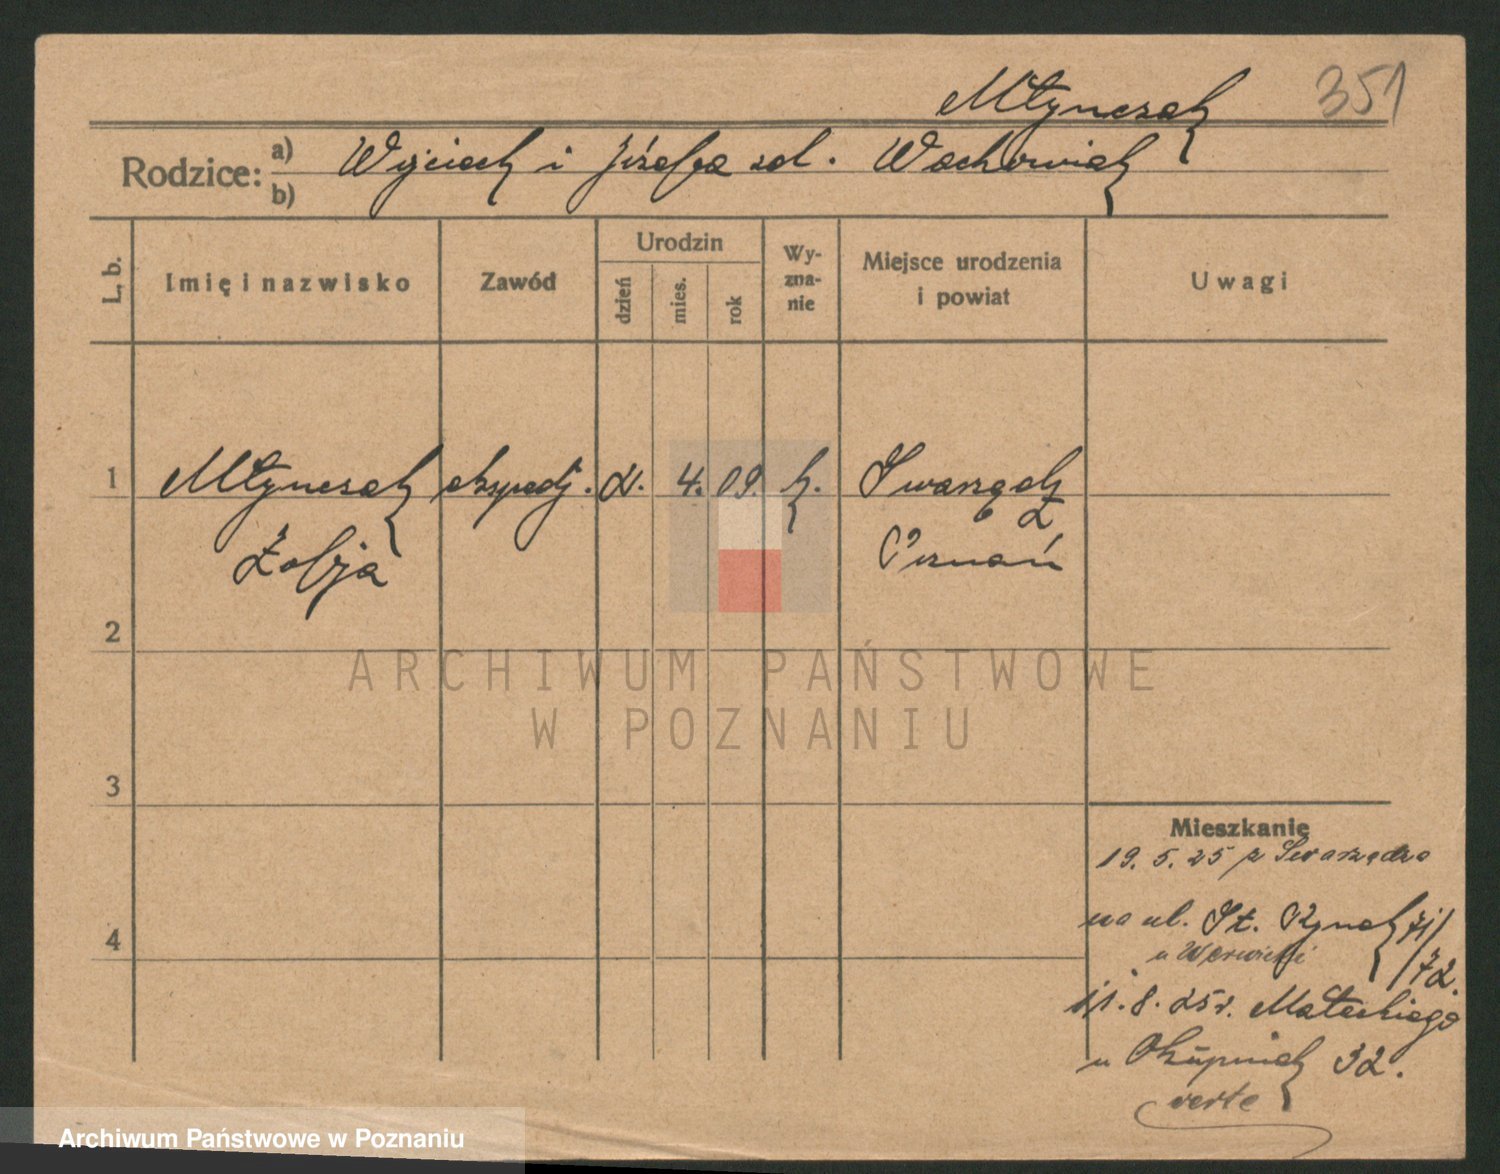 Młynczak 351
Rodzice: a) Wojciech i Józefa zd. Wachowiak
b)
L. b. Imię i nazwisko Zawód Urodzin dzień mies. rok Wyznanie Miejsce urodzenia i powiat Uwagi
1 Młynczak ekspedj. 2. 4. 09. k. Swarzędz
Zofja Poznań
2
ARCHIWUM PAŃSTWOWE
W POZNANIU
3
Mieszkanie
19. 5. 25 z Swarzędza
4
na ul. St. Rynek 71/
72.
11. 8. 25 r. Małeckiego
u 32.
verte
Archiwum Państwowe w Poznaniu